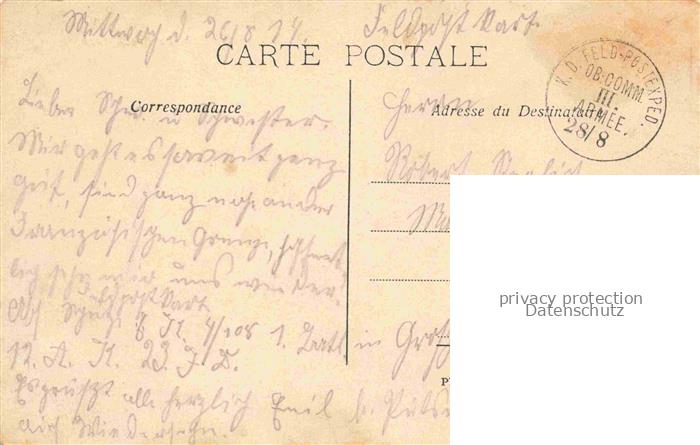 Mittwoch d. 26/8 14. Feldpost Kart
CARTE POSTALE
K. D. FELD-POSTEXPED.
OB-COMM.
III.
ARMEE.
28/8
Correspondance
Adresse du Destinataire
Lieber Schw. u Schwester.
Mir geht es soweit ganz
gut, sind ganz nahe an der
Französischen Grenze, hoffent
lich sehn wir uns wieder.
Feldpost Kart
4/108 1. Batl
12. A. K. 23. J. D.
Es grüßt alle herzlich Emil
auf Wiedersehn.
Herrn
Robert
in Groß
b. Puls
privacy protection
Datenschutz